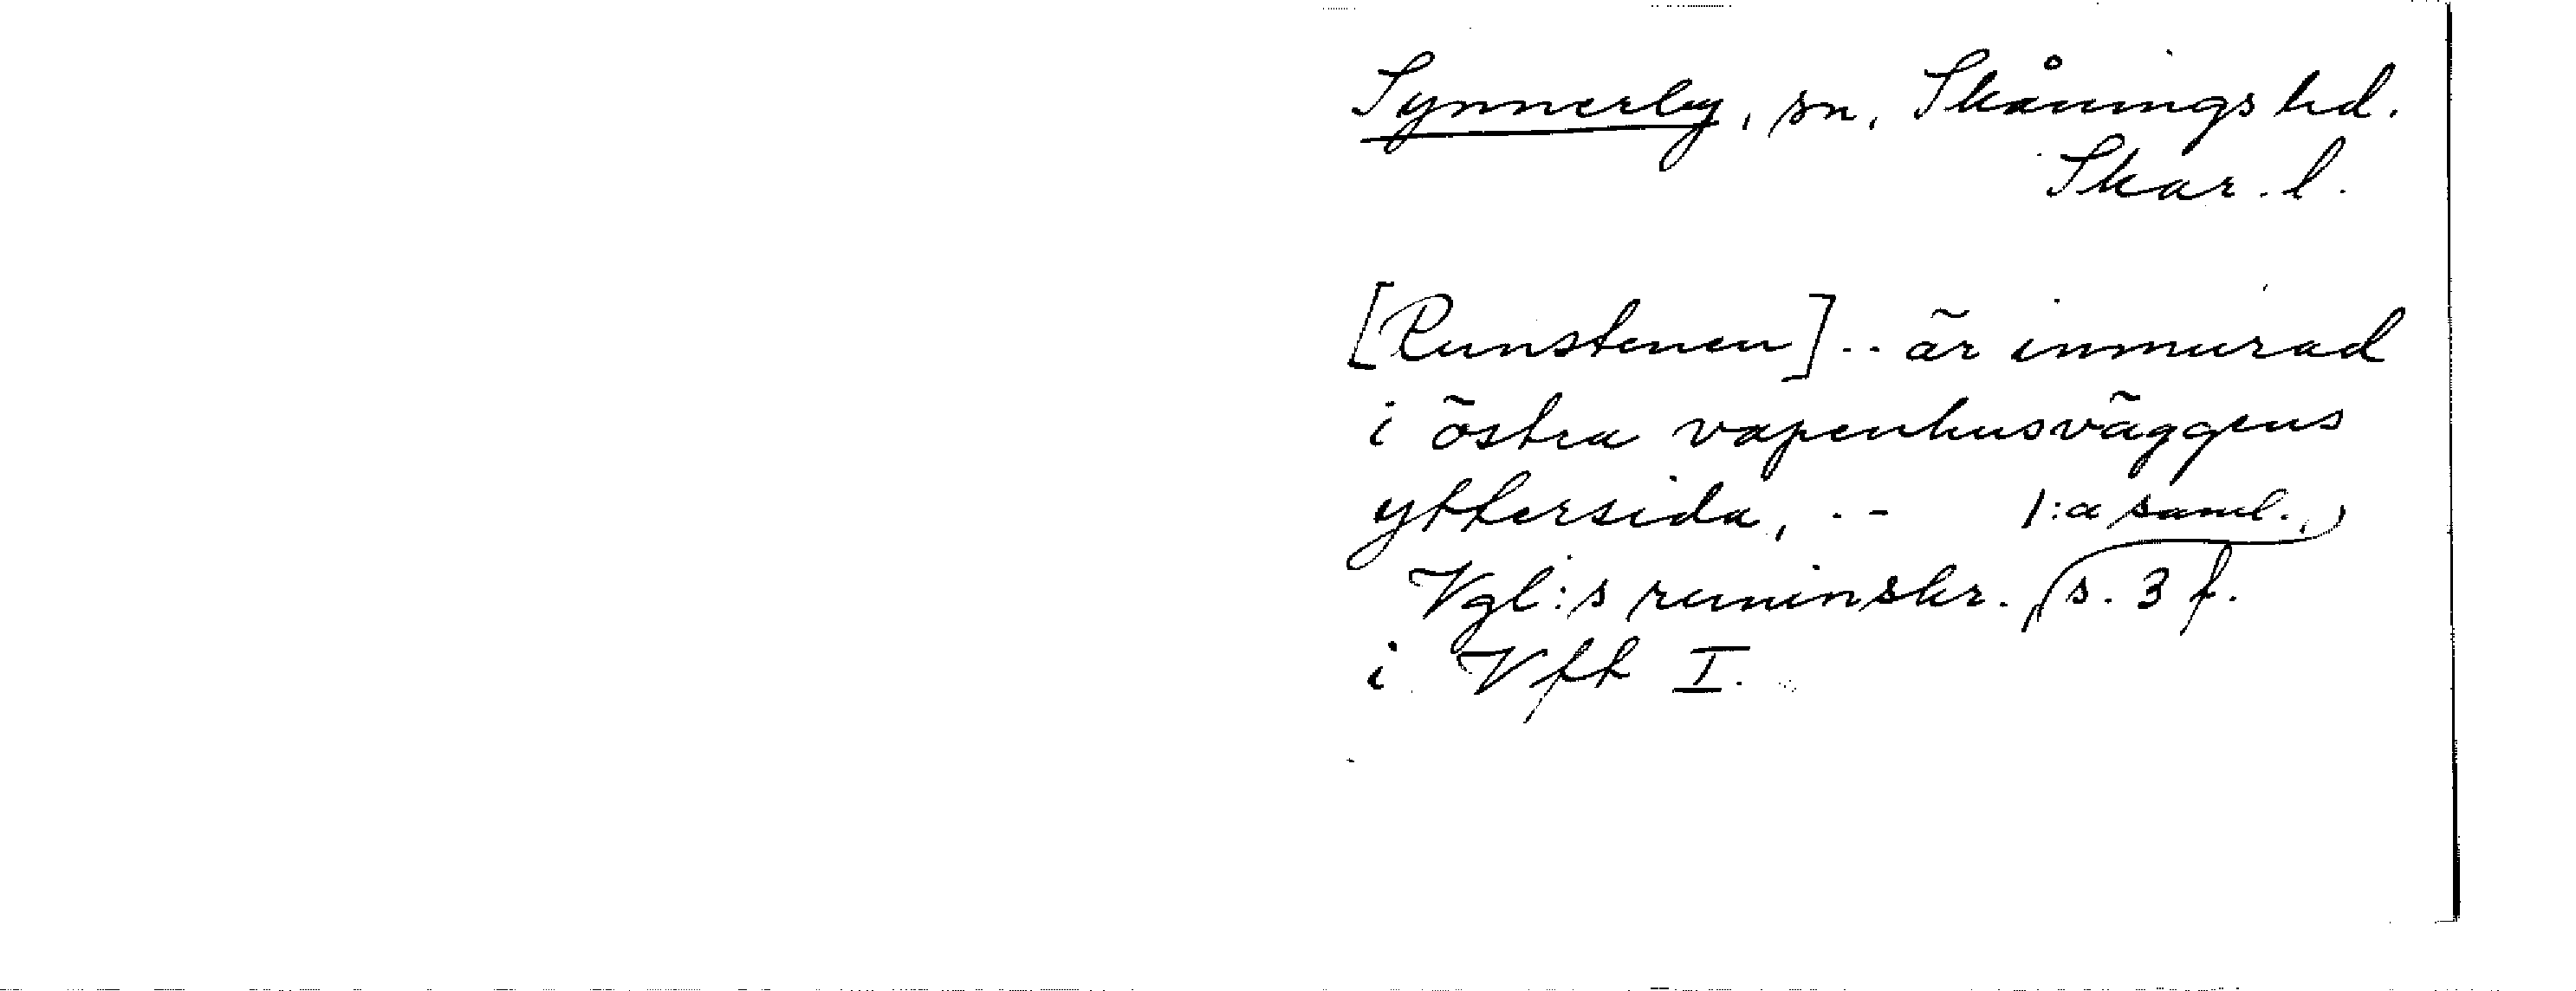 Synnerby, sn, Skånings hd.
Skar. l.
[Runstenen] .. är inmurad
i östra vapenhusväggens
yttersida, .- 1:a saml.,
Vgl:s runinskr. s. 3 f.
i Vft I.